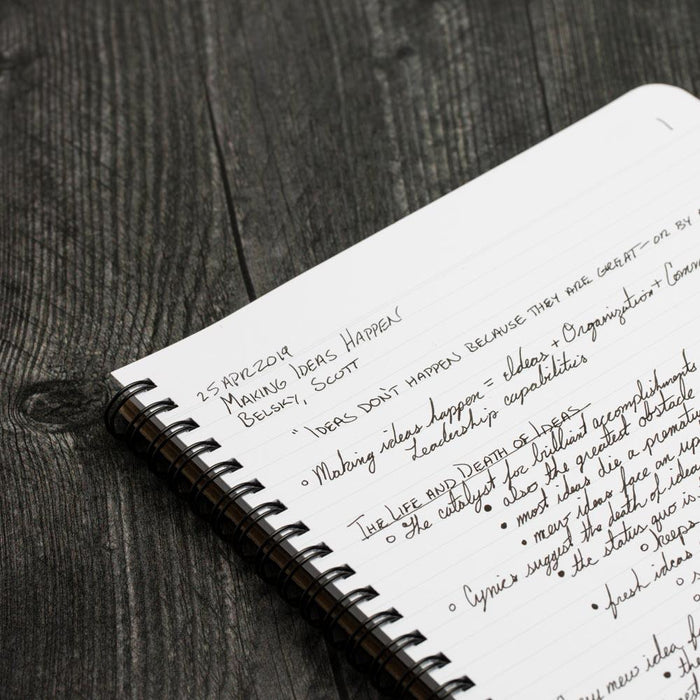 25 APR 2019
MAKING IDEAS HAPPEN
BELSKY, SCOTT
"IDEAS DON'T HAPPEN BECAUSE THEY ARE GREAT - OR BY
Making ideas happen = Ideas + Organization +
Leadership capabilities
THE LIFE AND DEATH OF IDEAS
The catalyst for brilliant accomplishments
also the greatest obstacle
most ideas die a
new ideas face an
Cynics suggest the death of
the status quo is
keeps
fresh ideas
new idea